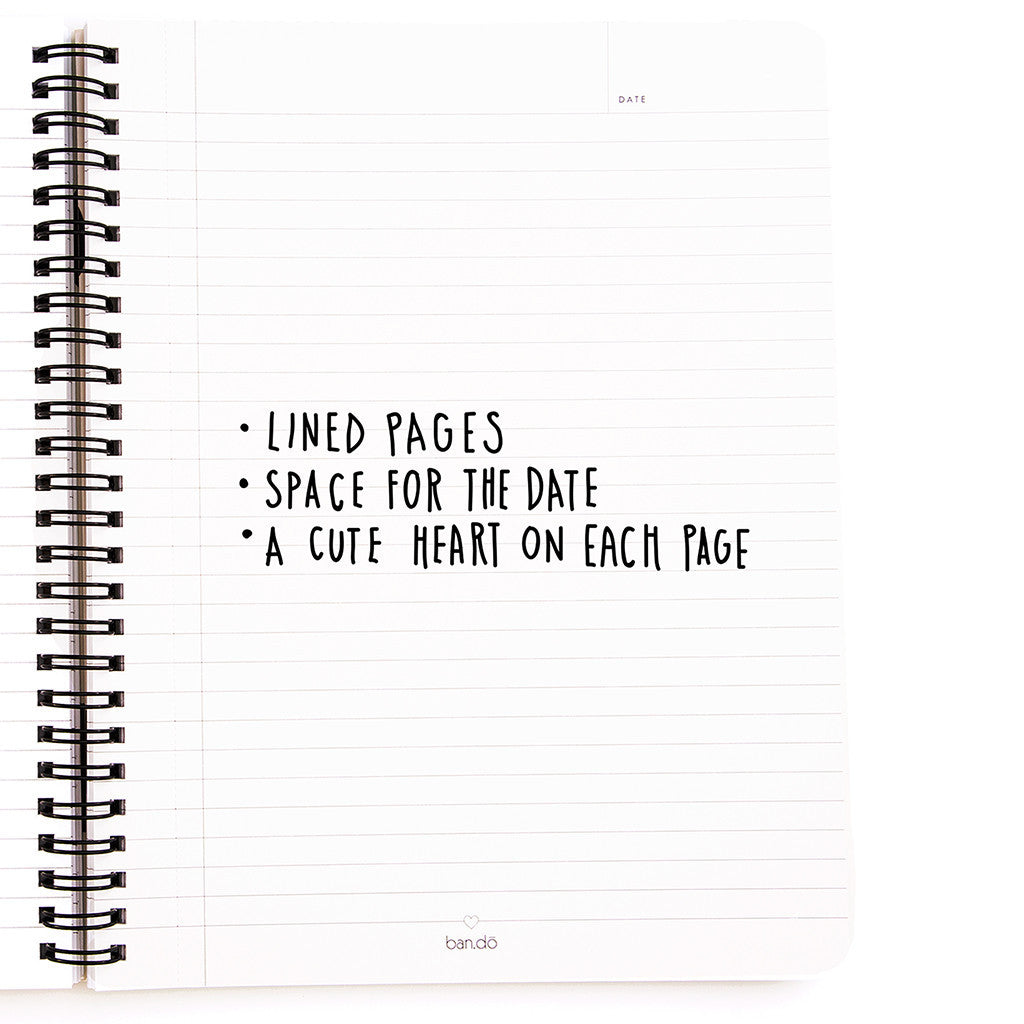 DATE
• LINED PAGES
• SPACE FOR THE DATE
• A CUTE HEART ON EACH PAGE
ban.dō